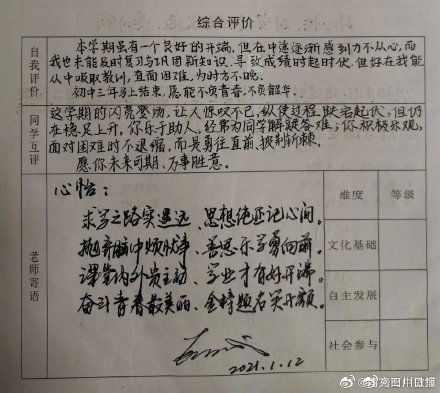 综合评价
自我评价
本学期虽有一个良好的开端，但在中途逐渐感到力不从心，而
我也未能及时复习与巩固新知识，导致成绩时起时伏，但好在我能
从中吸取教训，直面困难，为时方不晚。
初中三年马上结束，愿能不负青春，不负韶华。
同学互评
这学期的闪亮登场，让人惊叹不已，纵使过程跌宕起伏，但仍
在稳足上升。你乐于助人，经常为同学解疑答难；你积极乐观，
面对困难时不退缩，而是勇往直前，披荆斩棘。
愿你未来可期，万事胜意。
老师寄语
心怡：
求学之路实遥远、思想绝还记心间。
抛弃脑中烦扰事、善思乐学勇向前。
课堂内外贵主动、学业才有好开端。
奋斗青春最美丽、金榜题名笑开颜。
2021.1.12
维度 等级
文化基础
自主发展
社会参与
@四川日报